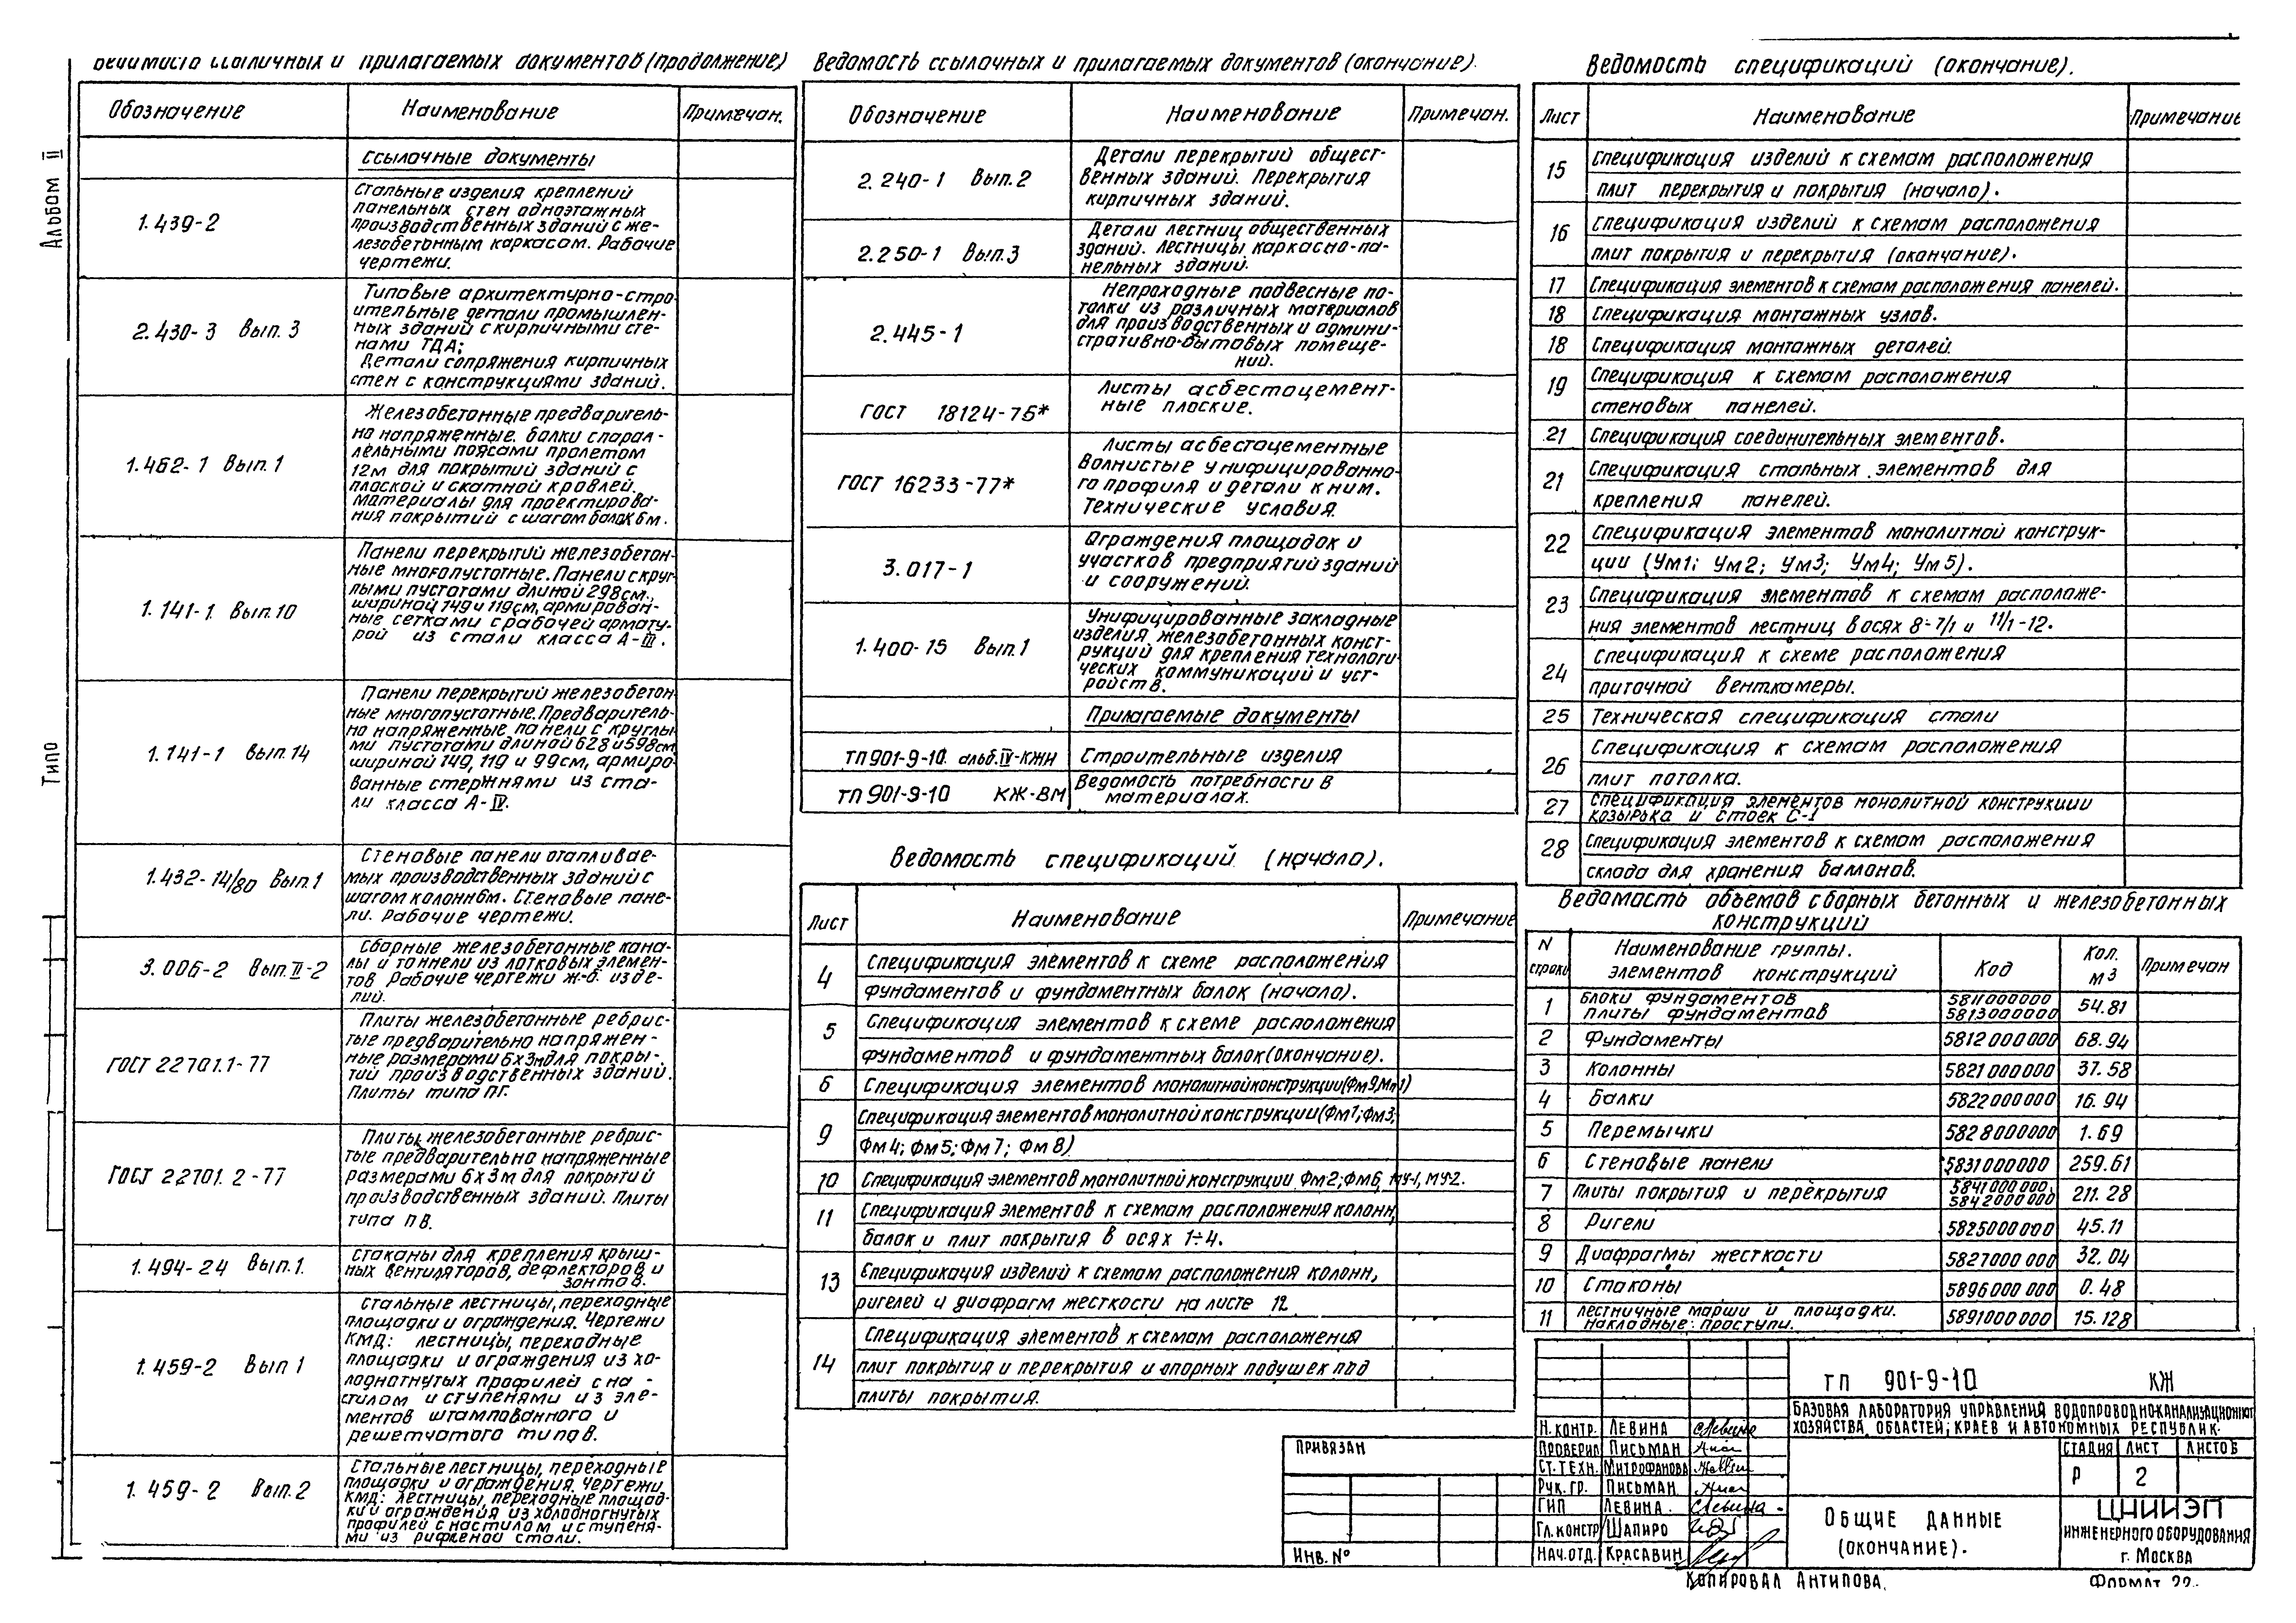 Альбом II
Типо
Ведомость ссылочных и прилагаемых документов (продолжение)
Обозначение
Наименование
Примечан.
Ссылочные документы
1.439-2
Стальные изделия креплений
панельных стен одноэтажных
производственных зданий с же-
лезобетонным каркасом. Рабочие
чертежи.
2.430-3 Вып. 3
Типовые архитектурно-стро-
ительные детали промышлен-
ных зданий с кирпичными сте-
нами ТДА;
Детали сопряжения кирпичных
стен с конструкциями зданий.
1.462-1 Вып.1
Железобетонные предваритель-
но напряженные балки спарал-
лельными поясами пролетом
12м для покрытий зданий с
плоской и скатной кровлей.
материалы для проектирова-
ния покрытий с шагом балок 6м.
1.141-1. Вып.10
Панели перекрытий железобетон-
ные многопустотные. Панели с круг-
лыми пустотами длиной 298см.,
шириной 149 и 119см, армирован-
ные сетками с рабочей армату-
рой из стали класса А-III.
1.141-1 Вып.14
Панели перекрытий железобетон
ные многопустотные. Предваритель-
но напряженные панели с круглы-
ми пустотами длиной 628 и 598см
шириной 149, 119 и 99см, армиро-
ванные стержнями из ста-
ли класса А-IV.
1.432-14/80 Вып.1
Стеновые панели отапливае-
мых производственных зданий с
шагом колонн 6м. Стеновые пане-
ли. Рабочие чертежи.
3.006-2 Вып.II-2
Сборные железобетонные кана-
лы и тоннели из лотковых элемен-
тов Рабочие чертежи ж-б. изде-
лий.
ГОСТ 22701.1-77
Плиты железобетонные ребрис-
тые предварительно напряжен-
ные размерами 6х3м для покры-
тий производственных зданий.
Плиты типа ПГ.
ГОСТ 22701.2-77
Плиты железобетонные ребрис-
тые предварительно напряженные
размерами 6х3м для покрытий
производственных зданий. Плиты
типа ПВ.
1.494-24 Вып.1.
Стаканы для крепления крыш-
ных вентиляторов, дефлекторов и
зонтов.
1.459-2 Вып 1
Стальные лестницы, переходные
площадки и ограждения. Чертежи
КМД: лестницы, переходные
площадки и ограждения из хо-
лодногнутых профилей с на-
стилом и ступенями из эле-
ментов штампованного и
решетчатого типов.
1.459-2 Вып.2
Стальные лестницы, переходные
площадки и ограждения. Чертежи
КМД: лестницы, переходные площад-
ки и ограждения из холодногнутых
профилей с настилом и ступеня-
ми из рифленой стали.
Ведомость ссылочных и прилагаемых документов (окончание).
Обозначение
Наименование
Примечан.
2.240-1 Вып.2
Детали перекрытий общест-
венных зданий. Перекрытия
кирпичных зданий.
2.250-1 Вып.3
Детали лестниц общественных
зданий. Лестницы каркасно-па-
нельных зданий.
2.445-1
Непроходные подвесные по-
толки из различных материалов
для производственных и админи-
стративно-бытовых помеще-
ний.
ГОСТ 18124-75*
Листы асбестоцемент-
ные плоские.
ГОСТ 16233-77*
Листы асбестоцементные
волнистые унифицированно-
го профиля и детали к ним.
Технические условия.
3.017-1
Ограждения площадок и
участков предприятий зданий
и сооружений.
1.400-15 Вып.1
Унифицированные закладные
изделия железобетонных конст-
рукций для крепления технологи-
ческих коммуникаций и уст-
ройств.
Прилагаемые документы
ТП 901-9-10. альб.IV-КЖИ
Строительные изделия
ТП 901-9-10 КЖ-ВМ
Ведомость потребности в
материалах.
Ведомость спецификаций (начало).
Лист
Наименование
Примечание
4
Спецификация элементов к схеме расположения
фундаментов и фундаментных балок (начало).
5
Спецификация элементов к схеме расположения
фундаментов и фундаментных балок (окончание).
6
Спецификация элементов монолитной конструкции (Фм9, Мп1)
9
Спецификация элементов монолитной конструкции (Фм1; Фм3;
Фм4; Фм5; Фм7; Фм8)
10
Спецификация элементов монолитной конструкции Фм2; Фм6, МУ-1, МУ-2.
11
Спецификация элементов к схемам расположения колонн,
балок и плит покрытия в осях 1÷4.
13
Спецификация изделий к схемам расположения колонн,
ригелей и диафрагм жесткости на листе 12
14
Спецификация элементов к схемам расположения
плит покрытия и перекрытия и опорных подушек под
плиты покрытия.
Ведомость спецификаций (окончание).
Лист
Наименование
Примечание
15
Спецификация изделий к схемам расположения
плит перекрытия и покрытия (начало).
16
Спецификация изделий к схемам расположения
плит покрытия и перекрытия (окончание).
17
Спецификация элементов к схемам расположения панелей.
18
Спецификация монтажных узлов.
18
Спецификация монтажных деталей.
19
Спецификация к схемам расположения
стеновых панелей.
21
Спецификация соединительных элементов.
21
Спецификация стальных элементов для
крепления панелей.
22
Спецификация элементов монолитной конструк-
ции (Ум1; Ум2; Ум3; Ум4; Ум5).
23
Спецификация элементов к схемам расположе-
ния элементов лестниц в осях 8-7/1 и 11/1-12.
24
Спецификация к схеме расположения
приточной венткамеры.
25
Техническая спецификация стали
26
Спецификация к схемам расположения
плит потолка.
27
Спецификация элементов монолитной конструкции
козырька и стоек С-1
28
Спецификация элементов к схемам расположения
склада для хранения баллонов.
Ведомасть объемов сборных бетонных и железобетонных
конструкций
N строки
Наименование группы.
элементов конструкций
Код
Кол. м3
Примечан
1
Блоки фундаментов
плиты фундаментов
5811000000
5813000000
54.81
2 Фундаменты 5812000000 68.94
3 Колонны 5821000000 37.58
4 Балки 5822000000 16.94
5 Перемычки 5828000000 1.69
6 Стеновые панели 5831000000 259.61
7 Плиты покрытия и перекрытия
5841000000
5842000000
211.28
8 Ригели 5825000000 45.11
9 Диафрагмы жесткости 5827000000 32.04
10 Стаканы 5896000000 0.48
11
Лестничные марши и площадки.
Накладные проступи.
5891000000
15.128
Привязан
Инв. №
Н.контр. Левина
Проверил Письман
Ст.техн. Митрофанова
Рук. гр. Письман
ГИП Левина.
Гл.констр Шапиро
Нач.отд. Красавин
ТП 901-9-10 КЖ
Базовая лаборатория управления водопроводно-канализационного
хозяйства областей; краев и автономных республик.
Стадия Лист Листов
Р 2
Общие данные
(окончание).
ЦНИИЭП
инженерного оборудования
г. Москва
Копировал Антипова.
Формат 22.